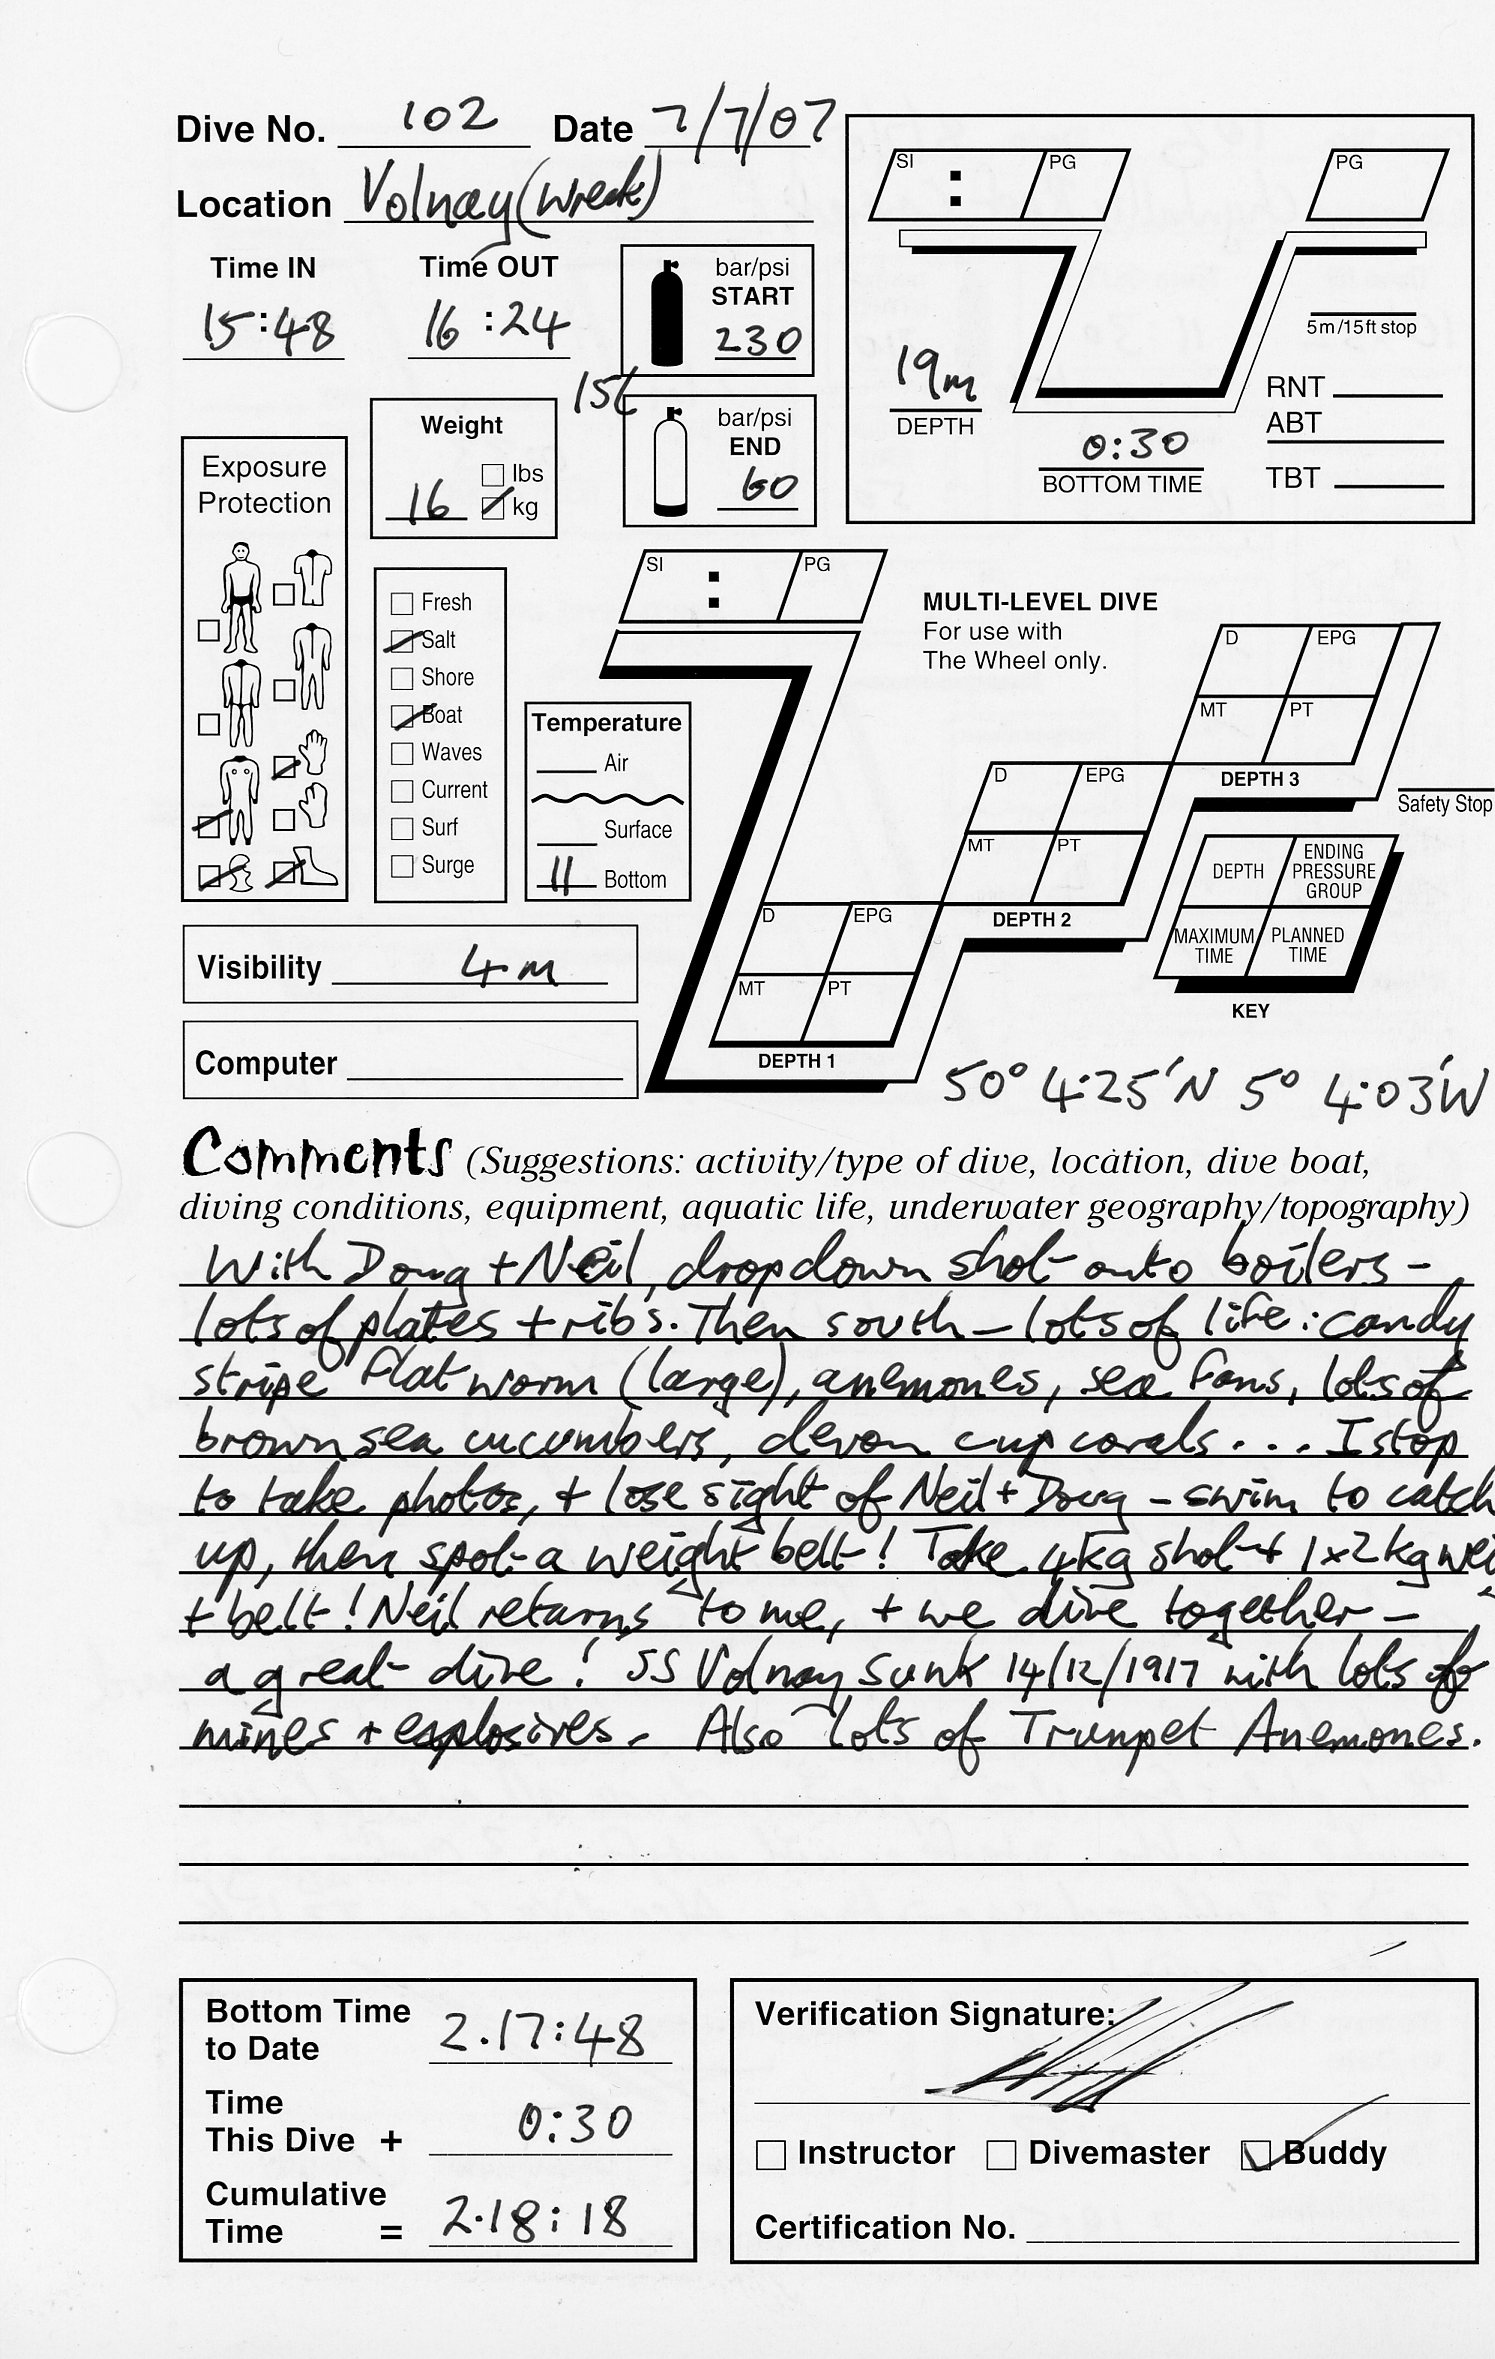 Dive No. 102 Date 7/7/07
Location Volnay (wreck)
Time IN Time OUT
15:48 16:24
bar/psi
START
230
15l
bar/psi
END
60
SI : PG PG
5m/15ft stop
19m
DEPTH
0:30
BOTTOM TIME
RNT
ABT
TBT
Weight
lbs
16 kg
Exposure
Protection
Fresh
Salt
Shore
Boat
Waves
Current
Surf
Surge
Temperature
Air
Surface
11 Bottom
Visibility 4m
Computer
SI : PG
MULTI-LEVEL DIVE
For use with
The Wheel only.
D EPG
MT PT
DEPTH 3
D EPG
MT PT
DEPTH 2
D EPG
MT PT
DEPTH 1
Safety Stop
DEPTH ENDING PRESSURE GROUP
MAXIMUM TIME PLANNED TIME
KEY
50° 4.25'N 5° 4.03'W
Comments (Suggestions: activity/type of dive, location, dive boat,
diving conditions, equipment, aquatic life, underwater geography/topography)
With Doug + Neil, drop down shot onto boilers -
lots of plates + ribs. Then south - lots of life: candy
stripe flat worm (large), anemones, sea fans, lots of
brown sea cucumbers, devon cup corals... I stop
to take photos, + lose sight of Neil + Doug - swim to catch
up, then spot a weight belt! Take 4kg shot + 1x2kg wei
+ belt! Neil returns to me, + we dive together -
a great dive! SS Volnay sunk 14/12/1917 with lots of
mines + explosives. Also lots of Trumpet Anemones.
Bottom Time
to Date 2.17:48
Time
This Dive + 0:30
Cumulative
Time = 2.18:18
Verification Signature:
Instructor Divemaster Buddy
Certification No.